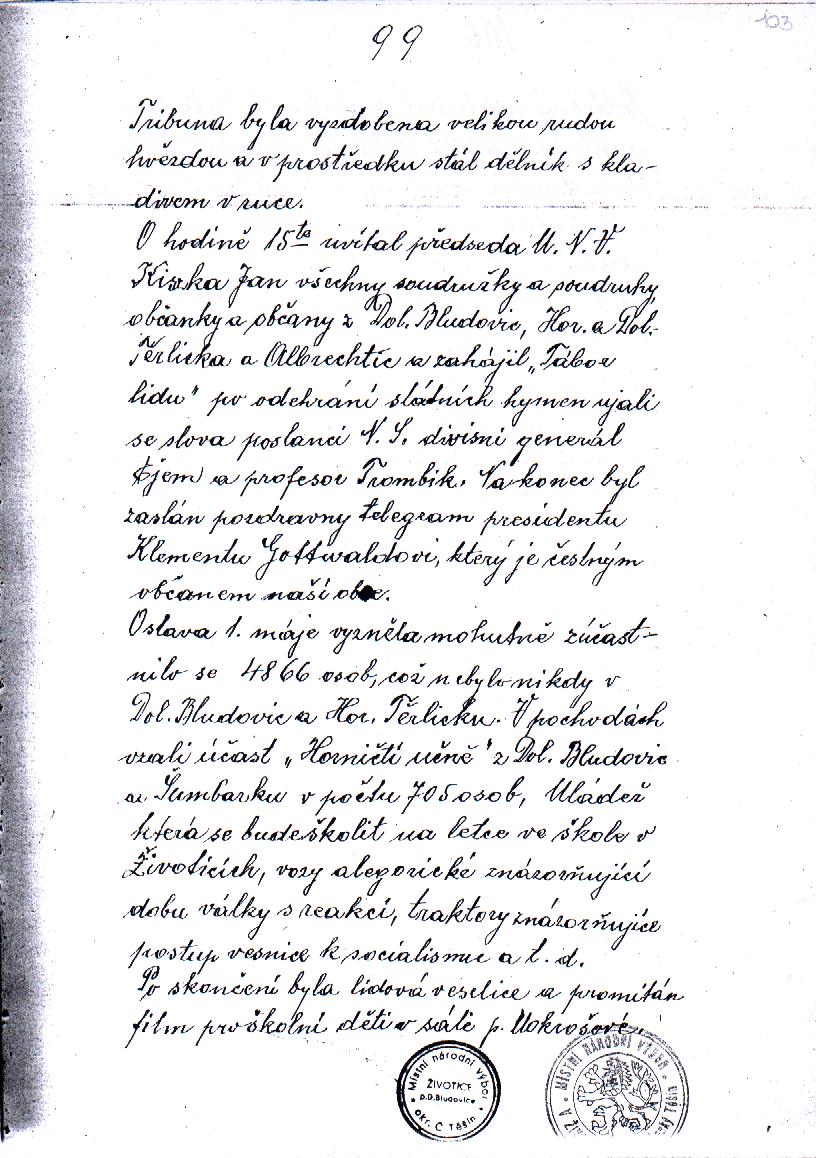 99
103
Tribuna byla vyzdobena velikou rudou
hvězdou a v prostředku stál dělník s kla-
divem v ruce.
O hodině 15té uvítal předseda M. N. V.
Kiszka Jan všechny soudružky a soudruhy,
občanky a občany z Dol. Bludovic, Hor. a Dol.
Těrlicka a Albrechtic a zahájil „Tábor
lidu" po odehrání státních hymen ujali
se slova poslanci N. S. divisní generál
a profesor Trombik. Na konec byl
zaslán pozdravny telegram presidentu
Klementu Gottwaldovi, který je čestným
občanem naší obce.
Oslava 1. máje vyzněla mohutně zúčast-
nilo se 4866 osob, což nebylo nikdy v
Dol. Bludovic a Hor. Těrlicku. V pochodách
vzali účast „Horničtí učně" z Dol. Bludovic
a Šumbarku v počtu 705 osob, Mládež
která se bude školit na letce ve škole v
Životicích, vozy alegorické znázorňující
dobu války s reakcí, traktory znázorňujíce
postup vesnice k socialismu a t. d.
Po skončení byla lidová veselice a promítán
film pro školní děti v sále p. Mokrošové.
Místní národní výbor
ŽIVOTICE
p.D.Bludovice
okr. Č Těšín
MÍSTNÍ NÁRODNÍ VÝBOR